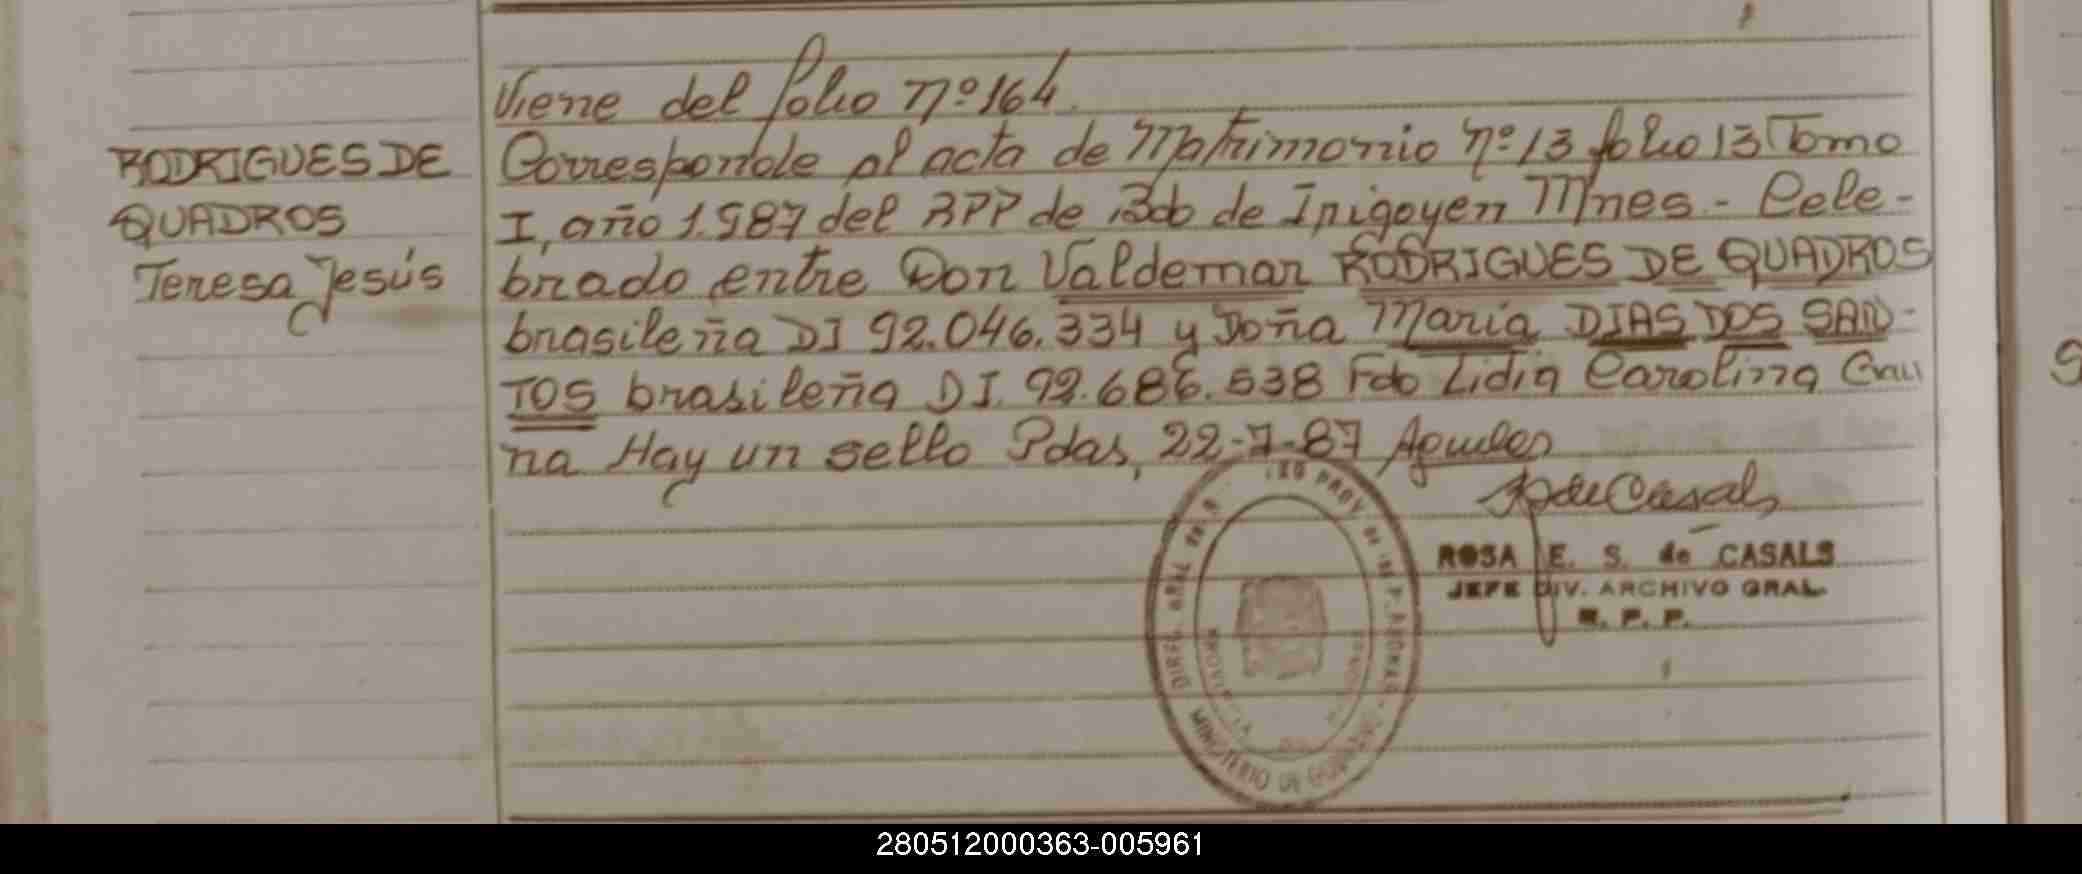 Viene del folio nº 164.
RODRIGUES DE
QUADROS
Teresa Jesús
Corresponde al acta de Matrimonio nº 13 folio 13 Tomo
I, año 1.987 del RPP de Bdo de Irigoyen Mnes - Cele-
brado entre Don Valdemar RODRIGUES DE QUADROS
brasileña DI 92.046.334 y Doña Maria DIAS DOS SAN-
TOS brasileña DI. 92.686.538 Fdo Lidia Carolina
na Hay un sello Pdas, 22-7-87
ROSA E. S. de CASALS
JEFE DIV. ARCHIVO GRAL.
R. P. P.
MINISTERIO DE
280512000363-005961